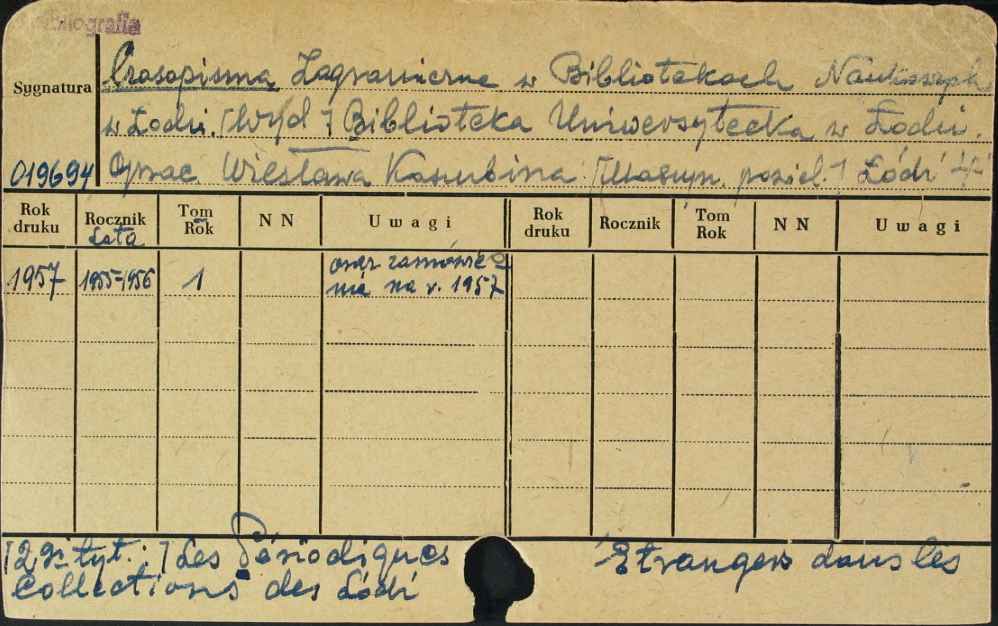 Bibliografia
Sygnatura
Czasopisma Zagraniczne w Bibliotekach Naukowych
w Łodzi. [Wyd.] Biblioteka Uniwersytecka w Łodzi.
019694 Oprac. Wiesława Kaszubina. [Maszyn. powiel.] Łódź
Rok druku Rocznik Lata Tom Rok NN Uwagi Rok druku Rocznik Tom Rok NN Uwagi
1957 1955-1956 1 oraz zamówie-
nia na r. 1957
[2gi tyt.:] Les Périodiques Étrangers dans les
Collections des Łódź